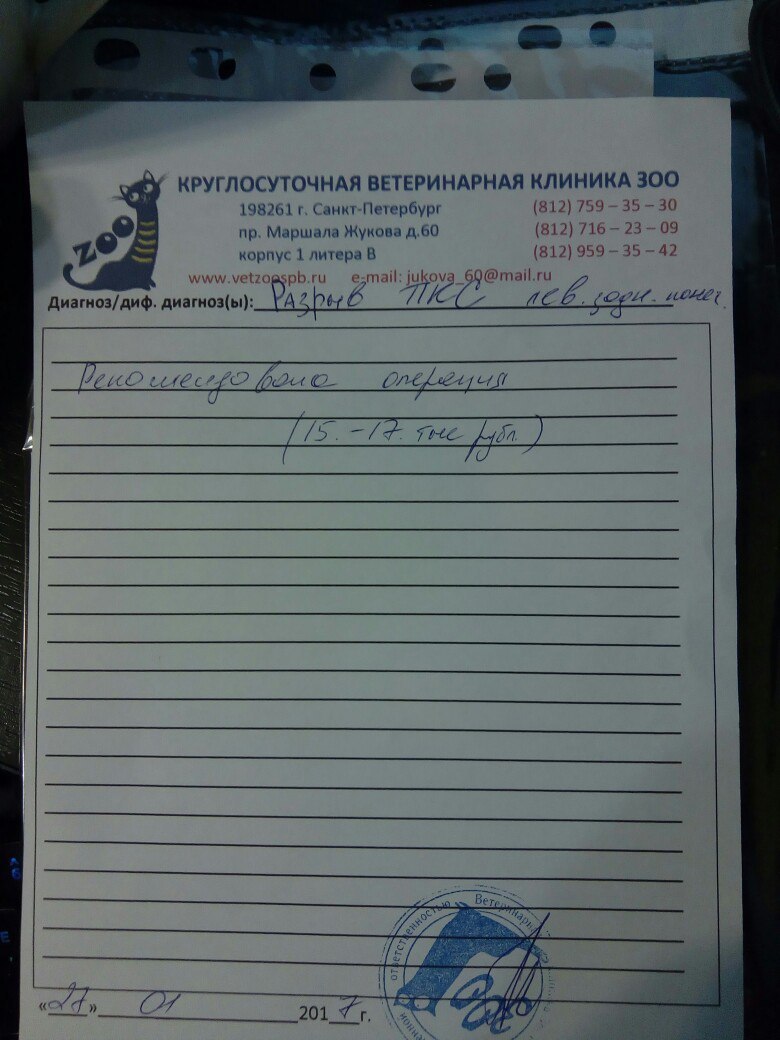 КРУГЛОСУТОЧНАЯ ВЕТЕРИНАРНАЯ КЛИНИКА ЗОО
ZOO
198261 г. Санкт-Петербург
(812) 759 – 35 – 30
пр. Маршала Жукова д.60
(812) 716 – 23 – 09
корпус 1 литера В
(812) 959 – 35 – 42
www.vetzoospb.ru e-mail: jukova_60@mail.ru
Диагноз/диф. диагноз(ы): Разрыв ПКС лев. задн. конеч.
Рекомендована операция
(15.-17. тыс рубл.)
ответственностью Ветеринарн
«27» 01 2017г.